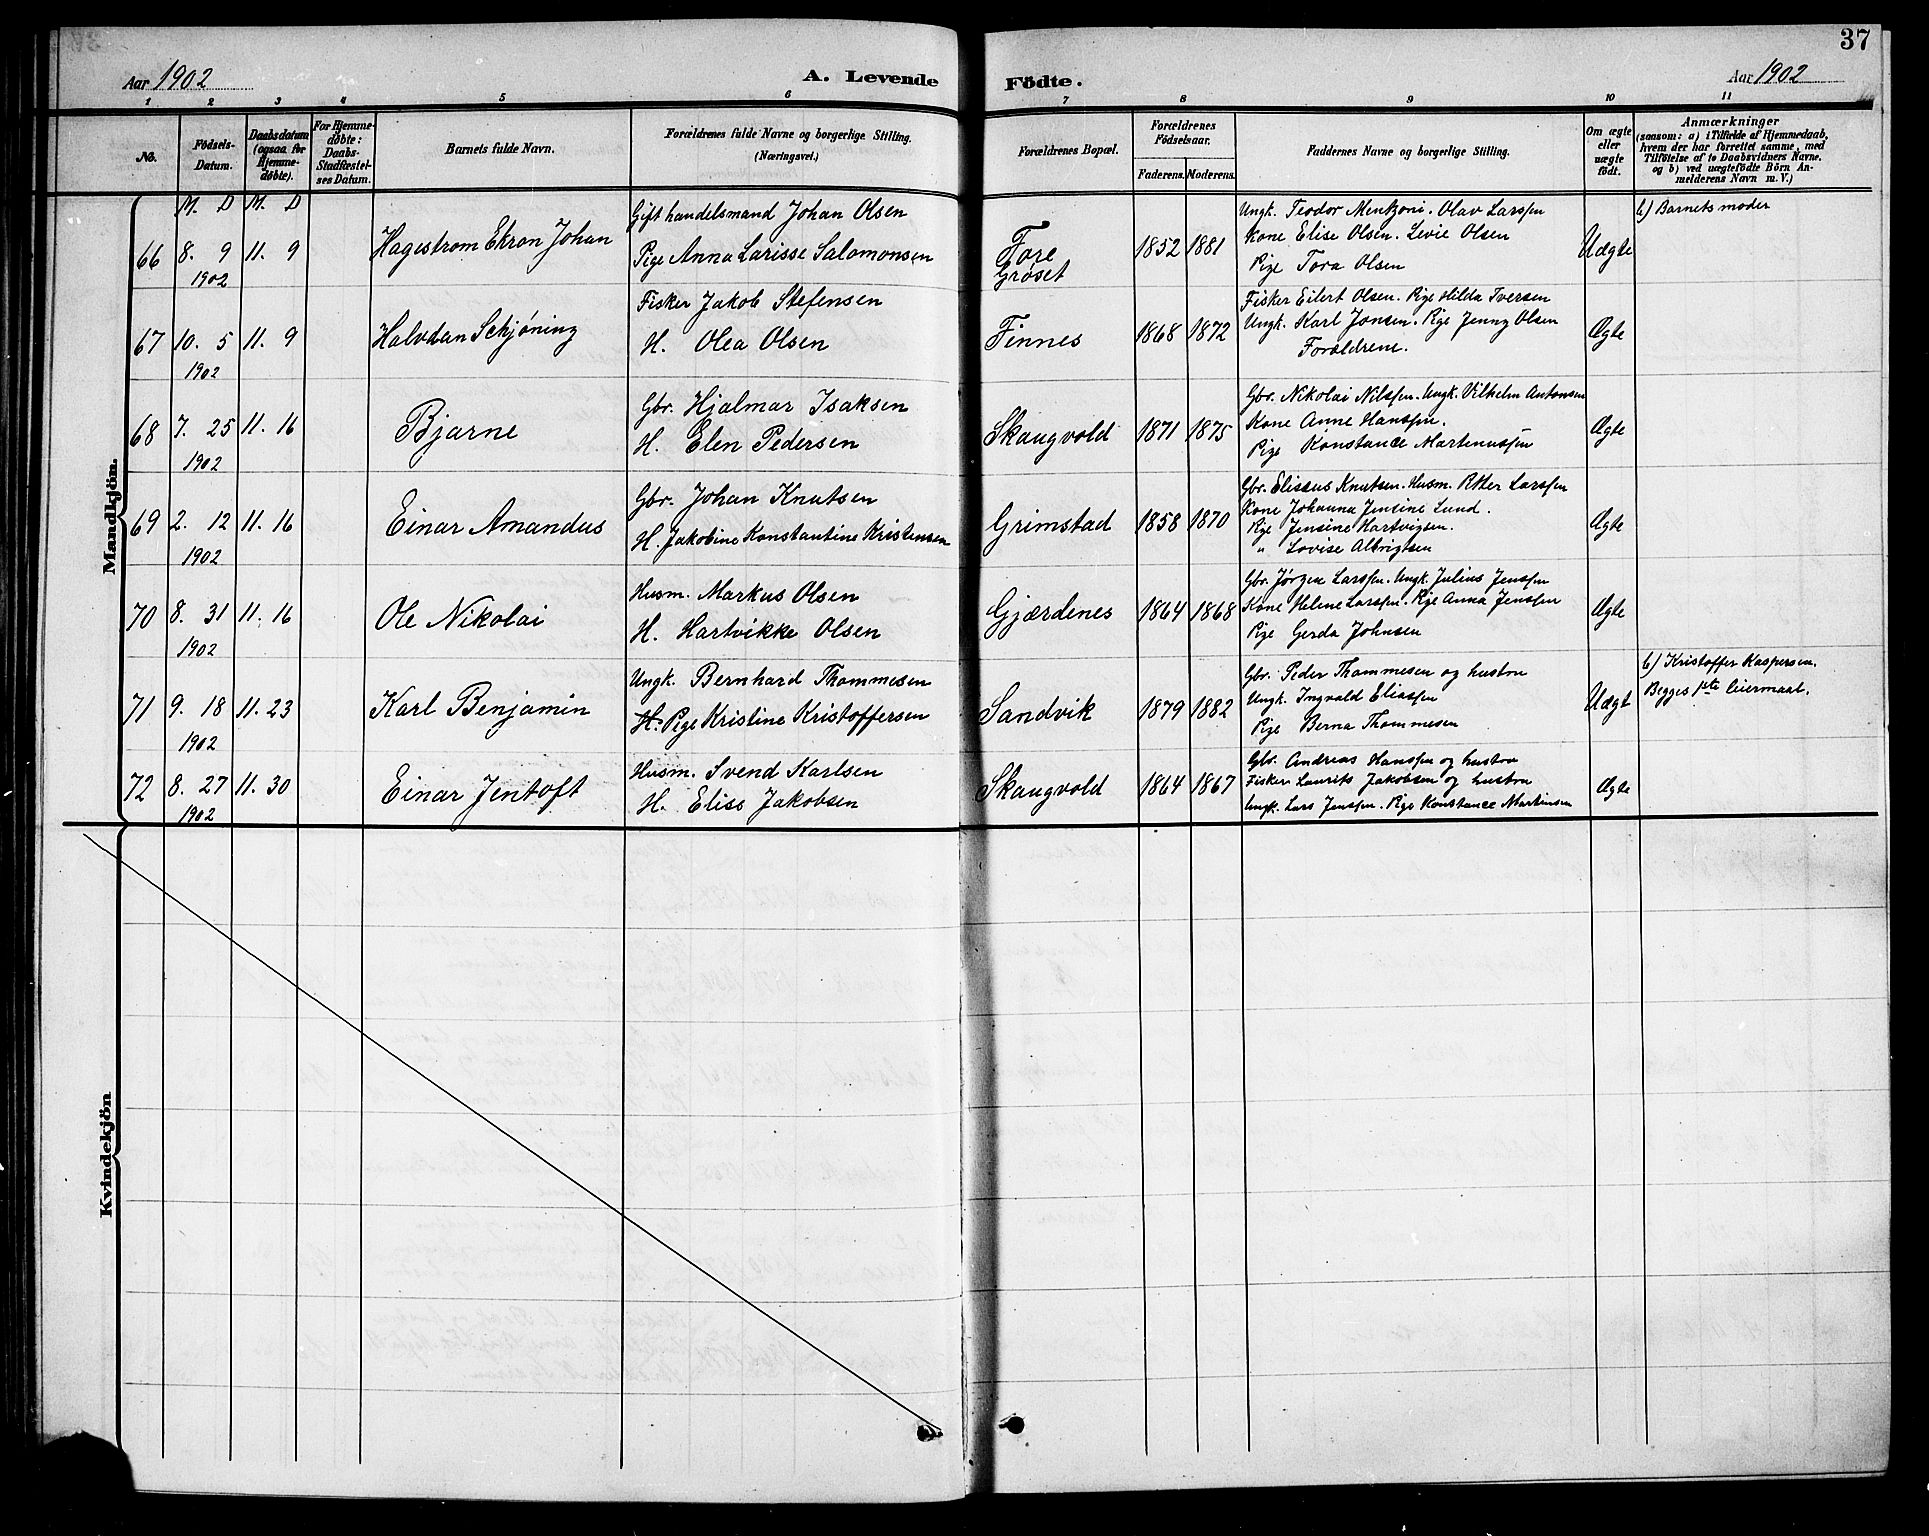 37
Aar 1902
A. Levende Födte.
Aar 1902
1 2 3 4 5 6 7 8 9 10 11
No.
Födsels-Datum.
Daabsdatum (ogsaa for Hjemme-döbte).
For Hjemme-döbte: Daabs-Stadfæstel-ses Datum.
Barnets fulde Navn.
Forældrenes fulde Navne og borgerlige Stilling.
(Næringsvei.)
Forældrenes Bopæl.
Forældrenes Födselsaar.
Faderens. Moderens.
Faddernes Navne og borgerlige Stilling.
Om ægte eller uægte födt.
Anmærkninger
(saasom: a) i Tilfælde af Hjemmedaab, hvem der har forrettet samme, med Tilföielse af to Daabsvidners Navne, og b) ved uægtefödte Börn An-melderens Navn m. V.)
Mandkjön.
M. D M. D
66 8. 9 11. 9 Hagestrom Ekron Johan
1902
Gift handelsmand Johan Olsen
Pige Anna Larisse Salomonsen
Fore
Grøset
1852 1881
Ungk. Teodor Mentzoni. Olav Larssen
Kone Elise Olsen. Levie Olsen
Pige Tora Olsen
Uægte
b) Barnets moder
67 10. 5 11. 9 Halvdan Schjøning
1902
Fisker Jakob Stefensen
H. Olea Olsen
Finnes 1868 1872
Fisker Eilert Olsen. Pige Hilda Iversen
Ungk. Karl Jonsen. Pige Jenny Olsen
Forældrene.
Ægte
68 7. 25 11. 16 Bjarne
1902
Gbr. Hjalmar Isaksen
H. Elen Pedersen
Skaugvold 1871 1875
Gbr. Nikolai Nilssen. Ungk. Vilhelm Antonsen
Kone Anne Hanssen.
Pige Konstance Martinussen
Ægte
69 2. 12 11. 16 Einar Amandus
1902
Gbr. Johan Knutsen
H. Jakobine Konstantine Kristensen
Grimstad 1858 1870
Gbr. Elisæus Knutsen. Husm. Peter Larssen
Kone Johanna Jensine Lund.
Pige Jensine Hartvigsen.
" Lovise Albrigtsen
Ægte
70 8. 31 11. 16 Ole Nikolai
1902
Husm. Markus Olsen
H. Hartvikke Olsen
Gjærdenes 1864 1868
Gbr. Jørgen Larssen. Ungk. Julius Jenssen
Kone Helene Larssen. Pige Anna Jenssen
Pige Gerda Johnsen
Ægte
71 9. 18 11. 23 Karl Benjamin
1902
Ungk. Bernhard Thommesen
H. Pige Kristine Kristoffersen
Sandvik 1879 1882
Gbr. Peder Thommesen og hustru
Ungk. Ingvald Eliassen
Pige Berna Thommesen
Uægt
b) Kristoffer Kaspersen.
Begges 1ste leiermaal.
72 8. 27 11. 30 Einar Jentoft
1902
Husm. Svend Karlsen
H. Elise Jakobsen
Skaugvold 1864 1867
Gbr. Andreas Hanssen og hustru
Fisker Laurits Jakobsen og hustru
Ungk. Lars Jenssen. Pige Konstance Martinsen
Ægte
Kvindekjön